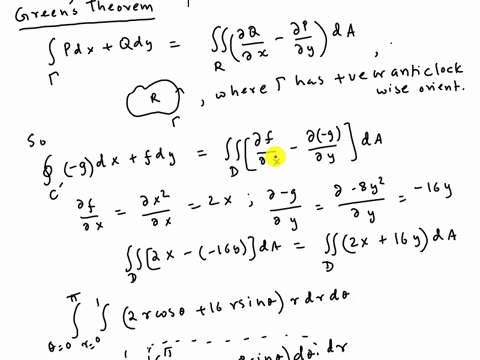 Green's Theorem
∫_Γ Pdx + Qdy = ∬_R (∂Q/∂x − ∂P/∂y) dA ,
R Γ , where Γ has +ve or anticlock
wise orient.
So
∮_C' (−g)dx + fdy = ∬_D [∂f/∂x − ∂(−g)/∂y] dA
∂f/∂x = ∂x²/∂x = 2x ; ∂−g/∂y = ∂−8y²/∂y = −16y
∬_D [2x − (−16y)] dA = ∬_D (2x + 16y) dA
∫_{θ=0}^{π} ∫_{r=0}^{1} (2rcosθ + 16 rsinθ) r dr dθ
sinθ) dθ · dr